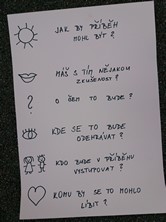 JAK BY PŘÍBĚH
MOHL BÝT?
MÁŠ S TÍM NĚJAKOU
ZKUŠENOST?
?
O ČEM TO BUDE?
KDE SE TO BUDE
ODEHRÁVAT?
KDO BUDE V PŘÍBĚHU
VYSTUPOVAT?
KOMU BY SE TO MOHLO
LÍBIT?